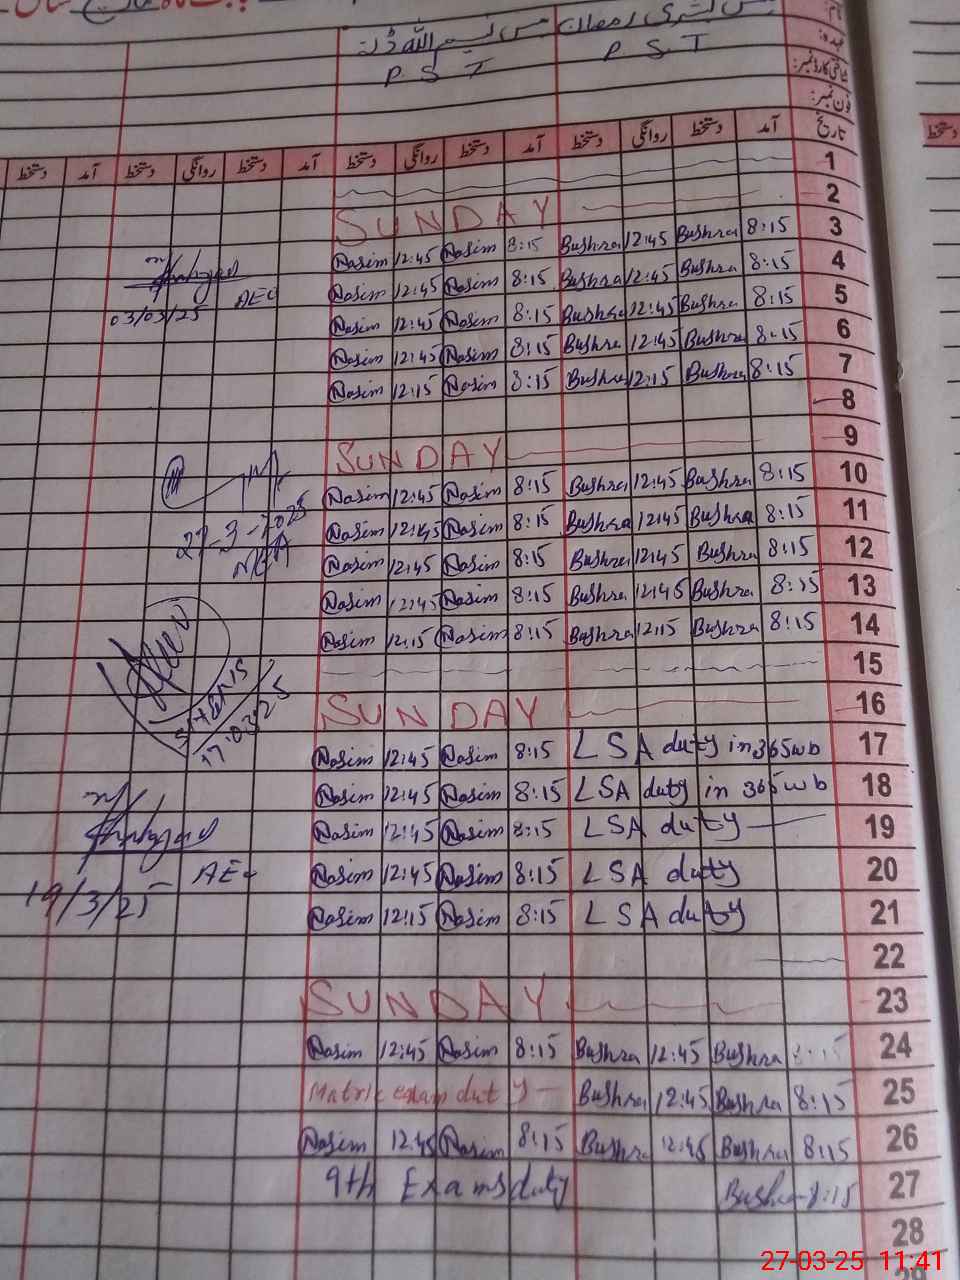 نام:
مس بشریٰ رمضان مس نسیم اللہ ڈنہ
عہدہ:
P S T P S T
شناختی کارڈ نمبر:
فون نمبر:
تاریخ آمد دستخط روانگی دستخط آمد دستخط روانگی دستخط آمد دستخط روانگی دستخط آمد دستخط
1
SUNDAY 2
Nasim 12:45 Nasim 8:15 Bushra 12:45 Bushra 8:15 3
Nasim 12:45 Nasim 8:15 Bushra 12:45 Bushra 8:15 4
AEO
03/03/25
Nasim 12:45 Nasim 8:15 Bushra 12:45 Bushra 8:15 5
Nasim 12:45 Nasim 8:15 Bushra 12:45 Bushra 8:15 6
Nasim 12:15 Nasim 8:15 Bushra 12:15 Bushra 8:15 7
8
SUNDAY 9
Nasim 12:45 Nasim 8:15 Bushra 12:45 Bushra 8:15 10
27-3-2025
Nasim 12:45 Nasim 8:15 Bushra 12:45 Bushra 8:15 11
Nasim 12:45 Nasim 8:15 Bushra 12:45 Bushra 8:15 12
Nasim 12:45 Nasim 8:15 Bushra 12:45 Bushra 8:15 13
Nasim 12:15 Nasim 8:15 Bushra 12:15 Bushra 8:15 14
15
SUNDAY 16
17.03.25
Nasim 12:45 Nasim 8:15 LSA duty in 365wb 17
Nasim 12:45 Nasim 8:15 LSA duty in 365wb 18
Nasim 12:45 Nasim 8:15 LSA duty 19
AEO
Nasim 12:45 Nasim 8:15 LSA duty 20
19/3/25
Nasim 12:15 Nasim 8:15 LSA duty 21
22
SUNDAY 23
Nasim 12:45 Nasim 8:15 Bushra 12:45 Bushra 8:15 24
Matric exam duty Bushra 12:45 Bushra 8:15 25
Nasim 12:45 Nasim 8:15 Bushra 12:45 Bushra 8:15 26
9th Exams duty Bushra 8:15 27
28
27-03-25 11:41